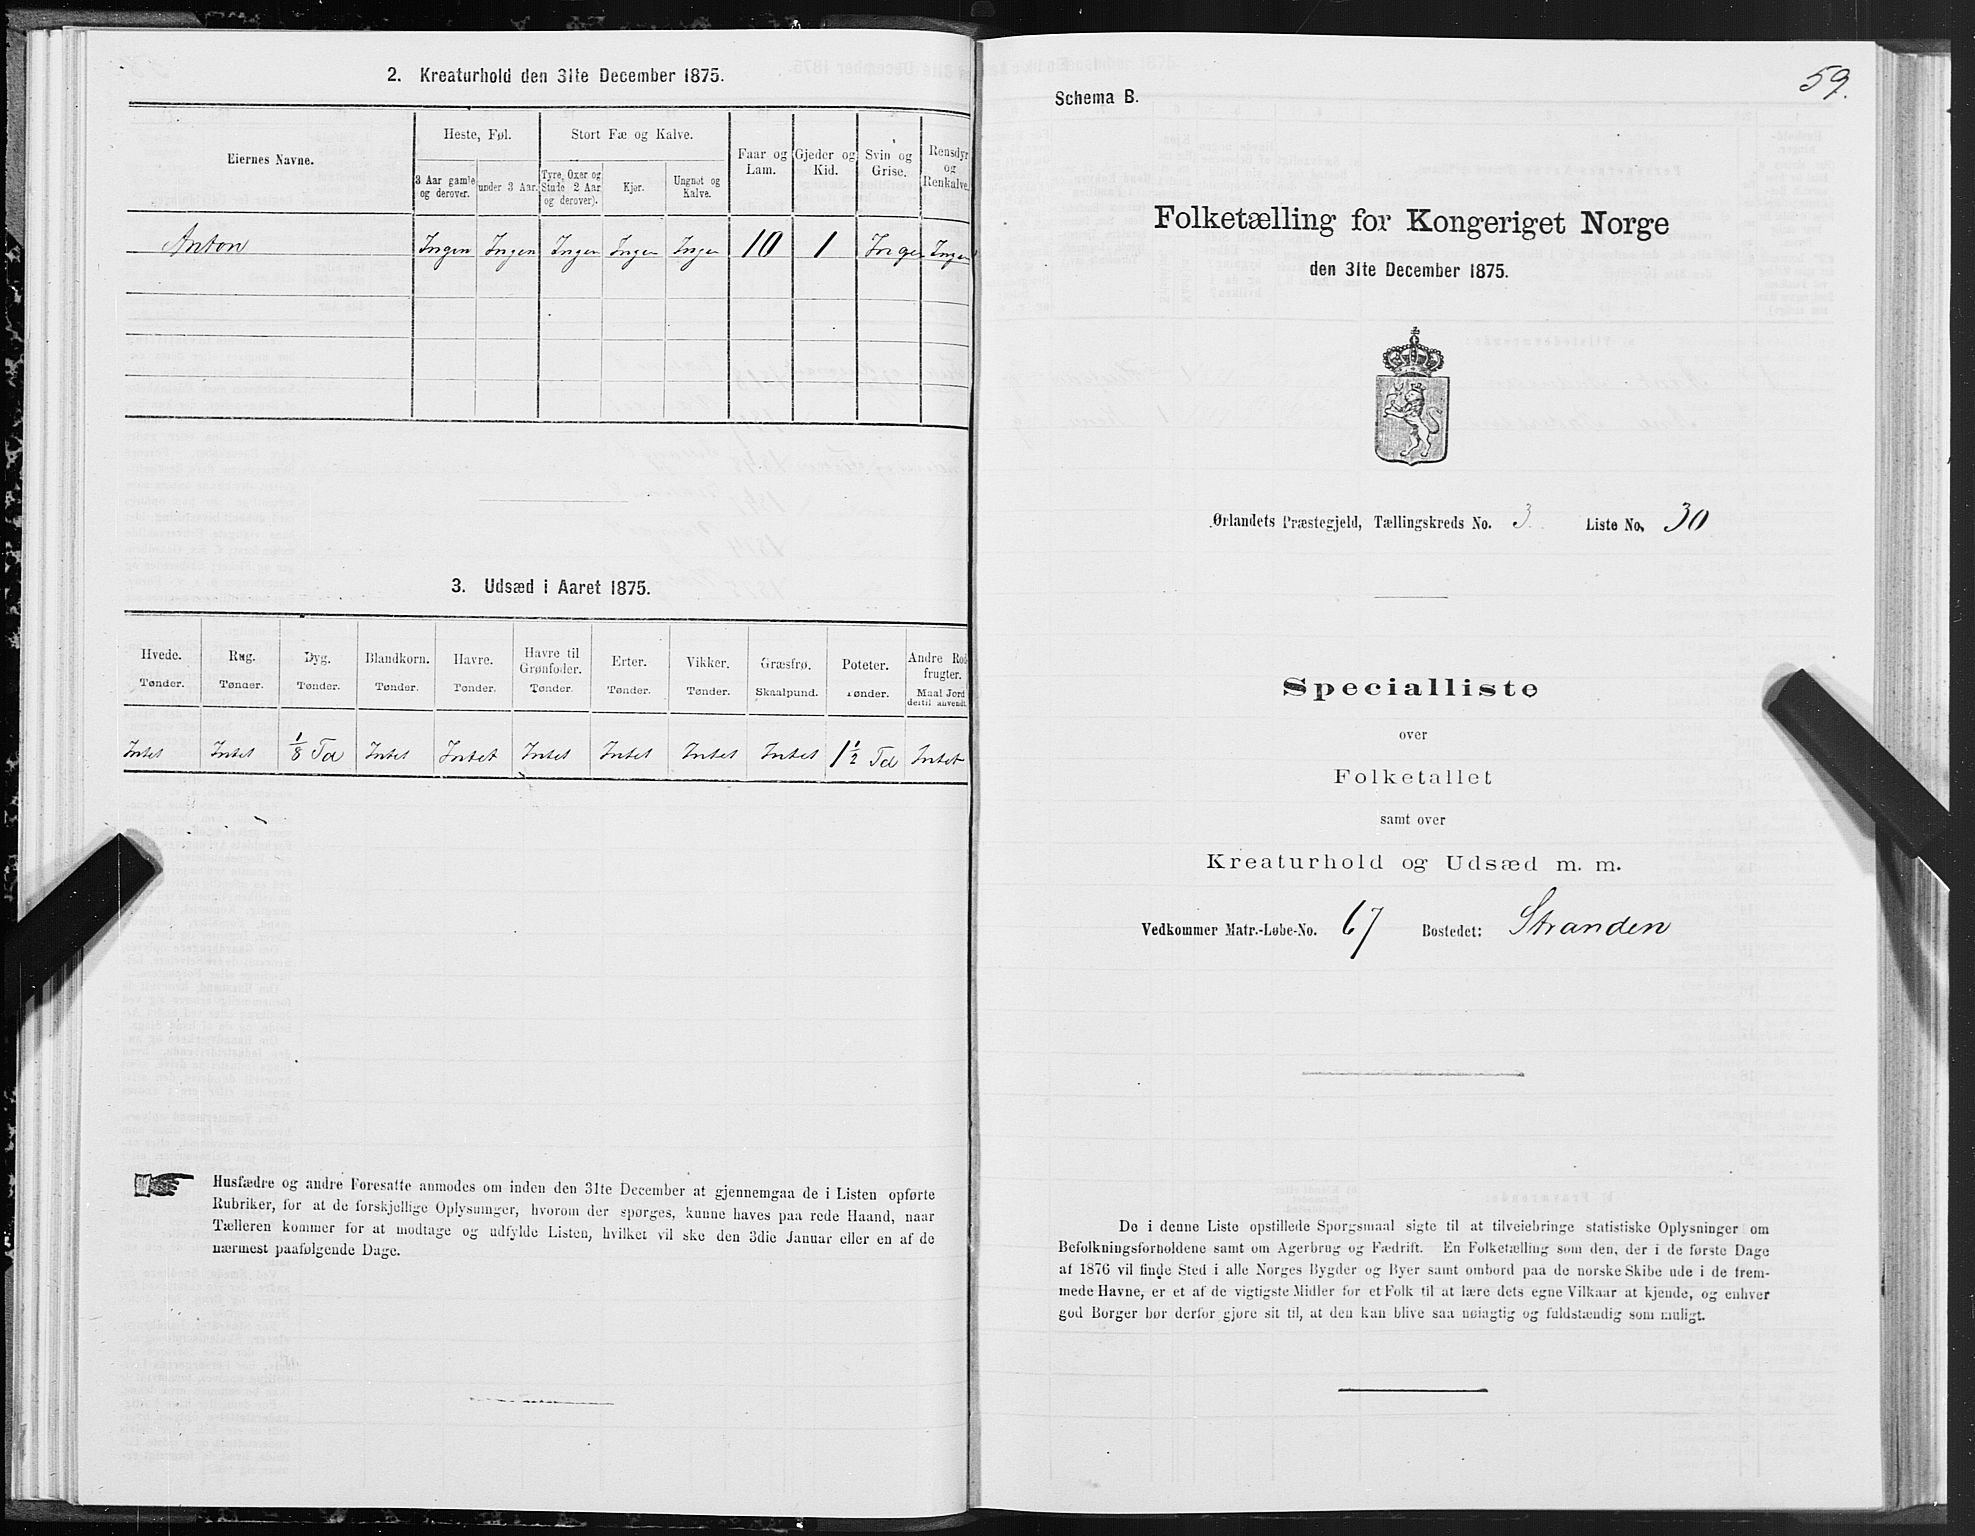 2. Kreaturhold den 31te December 1875.
Eiernes Navne.
Heste, Føl.
Stort Fæ og Kalve.
Faar og Lam.
Gjeder og Kid.
Svin og Grise.
Rensdyr og Renkalve.
3 Aar gamle og derover.
under 3 Aar.
Tyre, Oxer og Stude 2 Aar og derover).
Kjør.
Ungnøt og Kalve.
Anton Ingen Ingen Ingen Ingen Ingen 10 1 Ingen Ingen
3. Udsæd i Aaret 1875.
Hvede. Rug. Byg. Blandkorn. Havre. Havre til Grønfoder. Erter. Vikker. Græsfrø. Poteter. Andre Rodfrugter.
Tønder. Tønder. Tønder. Tønder. Tønder. Tønder. Tønder. Tønder. Skaalpund. Tønder. Maal Jord dertil anvendt.
Intet Intet 1/8 Td Intet Intet Intet Intet Intet Intet 1 1/2 Td Intet
Husfædre og andre Foresatte anmodes om inden den 31te December at gjennemgaa de i Listen opførte
Rubriker, for at de forskjellige Oplysninger, hvorom der spørges, kunne haves paa rede Haand, naar
Tælleren kommer for at modtage og udfylde Listen, hvilket vil ske den 3die Januar eller en af de
nærmest paafølgende Dage.
59.
Schema B.
Folketælling for Kongeriget Norge
den 31te December 1875.
Ørlandets Præstegjeld, Tællingskreds No. 3. Liste No. 30
Specialliste
over
Folketallet
samt over
Kreaturhold og Udsæd m. m.
Vedkommer Matr.-Løbe-No. 67 Bostedet: Stranden
De i denne Liste opstillede Spørgsmaal sigte til at tilveiebringe statistiske Oplysninger om
Befolkningsforholdene samt om Agerbrug og Fædrift. En Folketælling som den, der i de første Dage
af 1876 vil finde Sted i alle Norges Bygder og Byer samt ombord paa de norske Skibe ude i de frem-
mede Havne, er et af de vigtigste Midler for et Folk til at lære dets egne Vilkaar at kjende, og enhver
god Borger bør derfor gjøre sit til, at den kan blive saa nøiagtig og fuldstændig som muligt.